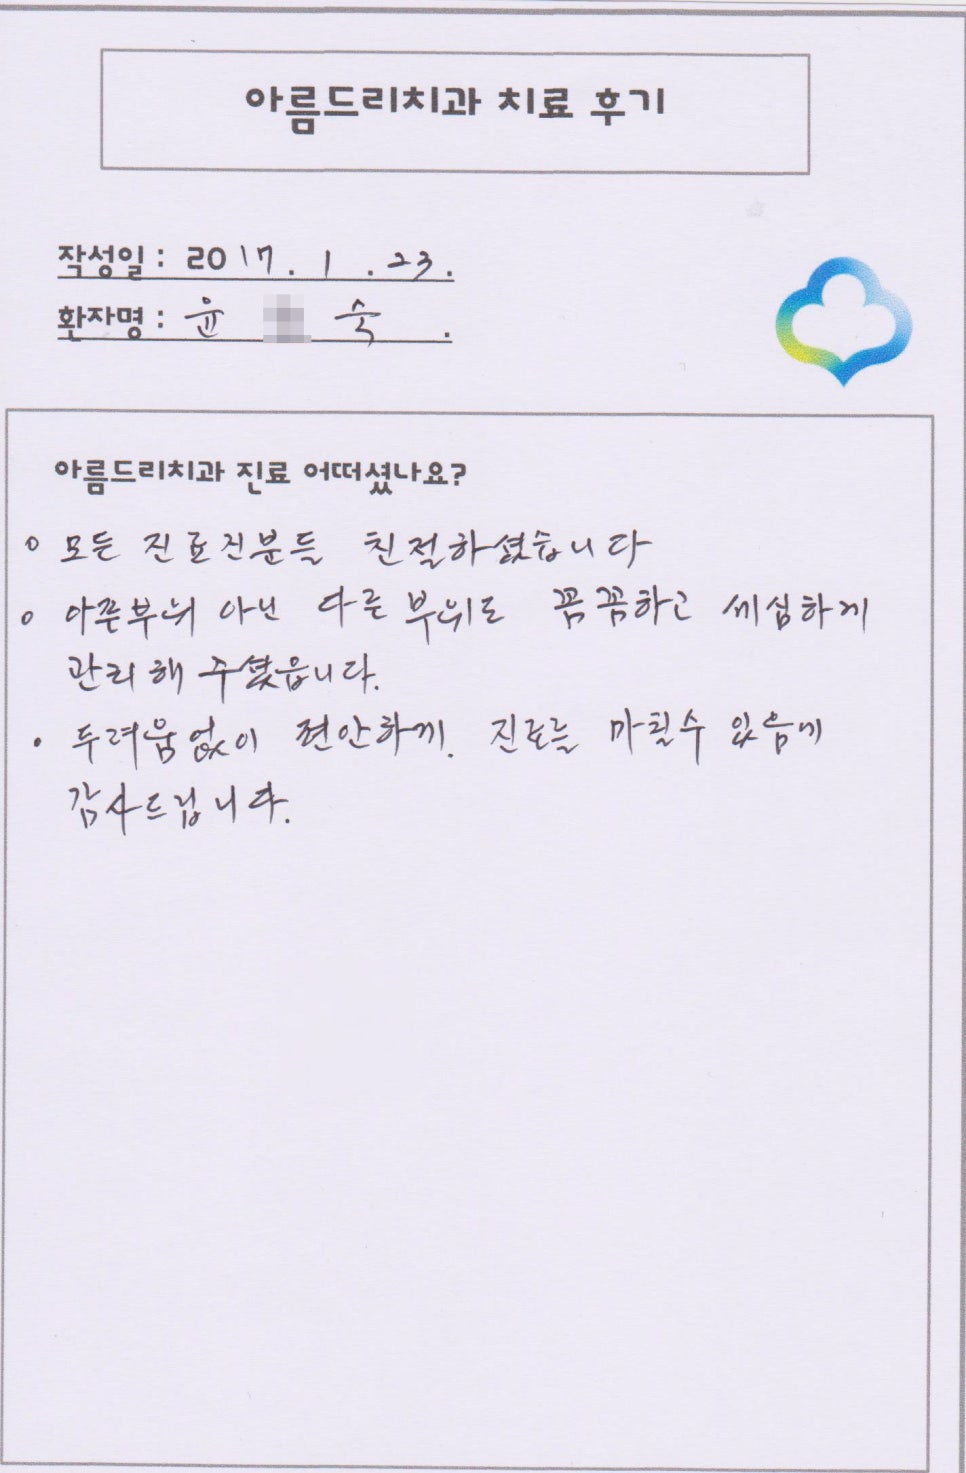 아름드리치과 치료 후기
작성일 : 2017 . 1 . 23 .
환자명 : 윤 숙 .
아름드리치과 진료 어떠셨나요?
o 모든 진료진분들 친절하셨습니다
o 아픈부위 아닌 다른 부위도 꼼꼼하고 세심하게
관리해 주셨읍니다.
· 두려움없이 편안하게. 진료를 마칠수 있음에
감사드립니다.